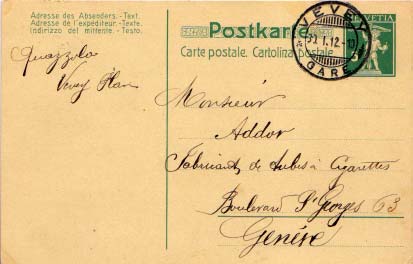 Adresse des Absenders. - Text.
Adresse de l'expéditeur. - Texte.
Indirizzo del mittente. - Testo.
Postkarte
Carte postale. Cartolina postale.
HELVETIA
5
VEVEY
30.I.12.-10
GARE
Quazzola
Vevey Plan
Monsieur
Addor
Fabricant de tubes à Cigarettes
Boulevard St Georges 63
Genève